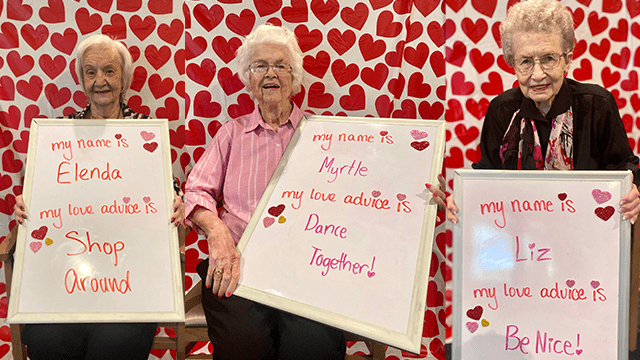 my name is
Elenda
my love advice is
Shop
Around
my name is
Myrtle
my love advice is
Dance
Together!
my name is
Liz
my love advice is
Be Nice!